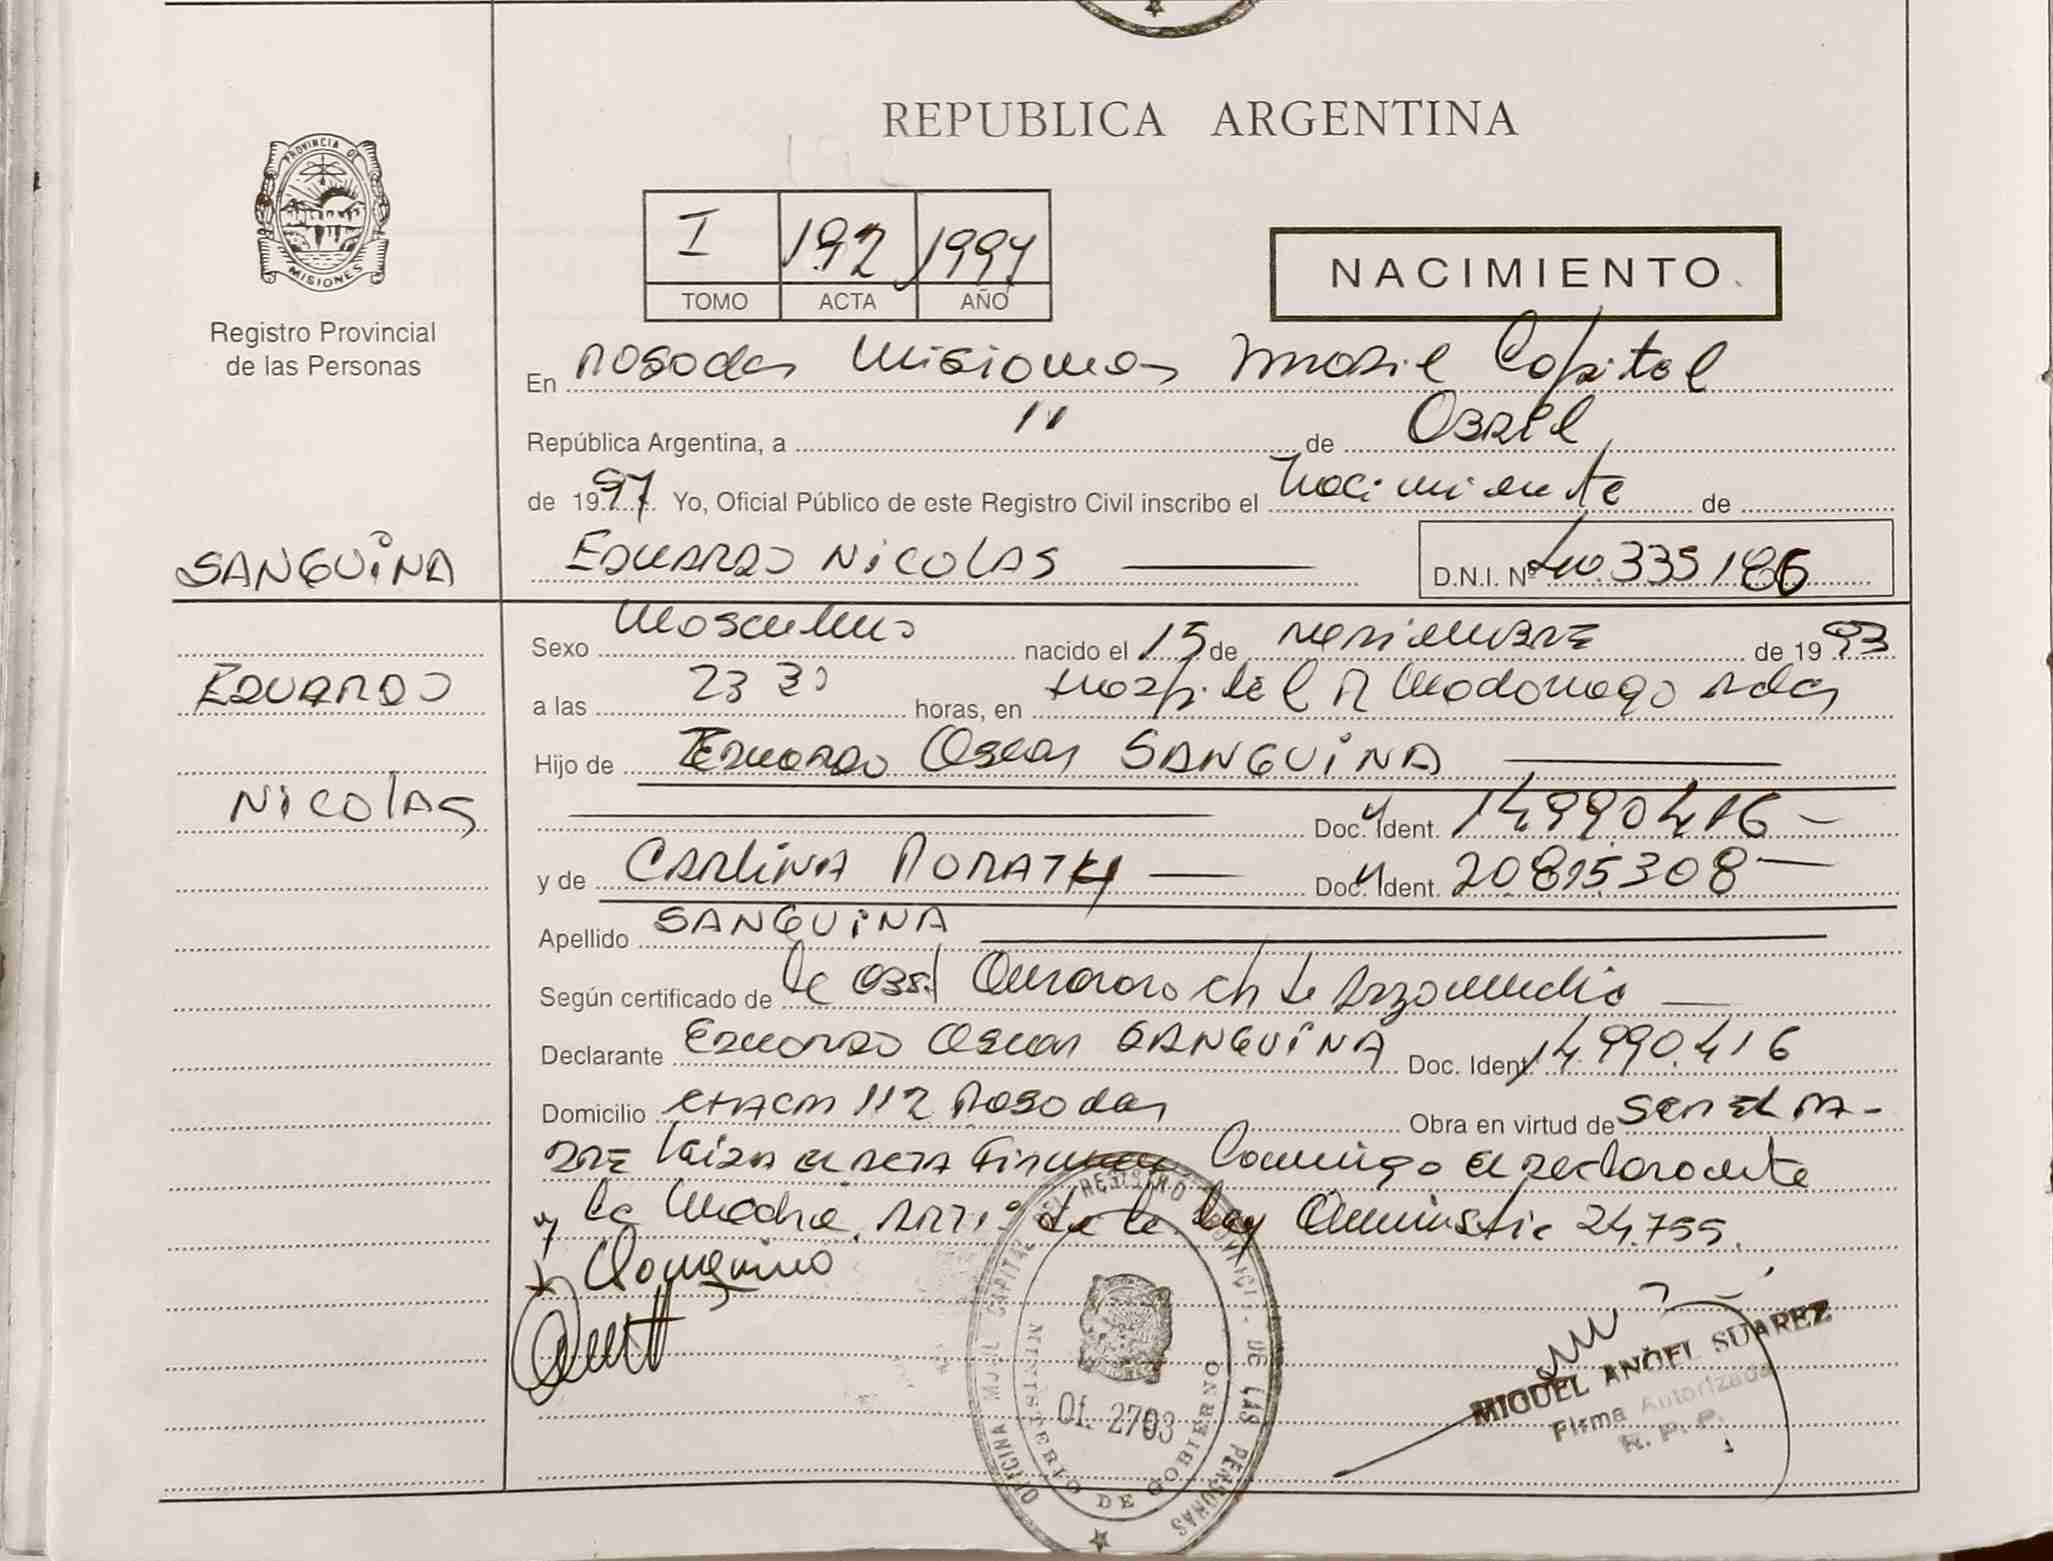 REPUBLICA ARGENTINA
PROVINCIA DE
MISIONES
Registro Provincial
de las Personas
I 192 1997
TOMO ACTA AÑO
NACIMIENTO
En Posadas Misiones Capital
República Argentina, a 11 de Abril
de 1997 Yo, Oficial Público de este Registro Civil inscribo el Nacimiento de
SANGUINA
EDUARDO NICOLAS
D.N.I. Nº 40.335.186
Sexo Masculino nacido el 15 de de 1993
EDUARDO
a las 23 30 horas, en Hospital R Madariaga Pdas
Hijo de Eduardo Oscar SANGUINA
NICOLAS
Doc. Ident. 14.990.416
y de CARLINA Doc. Ident. 20.815.308
Apellido SANGUINA
Según certificado de
Declarante Eduardo Oscar SANGUINA Doc. Ident. 14.990.416
Domicilio CHACRA 112 Posadas Obra en virtud de SER EL PA-
DRE conmigo el declarante
y la Madre de la Ley 24.755.
OFICINA MOVIL CAPITAL DEL REGISTRO PROVINCIAL DE LAS PERSONAS
MINISTERIO DE GOBIERNO
Of. 2703
MIGUEL ANGEL SUAREZ
Firma Autorizada
R. P. P.